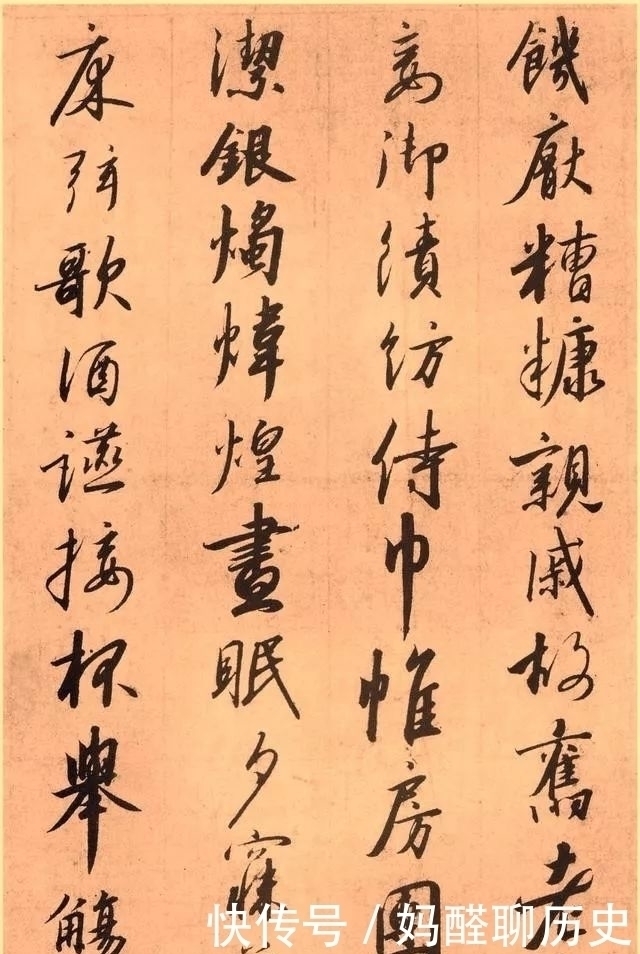 饑厭糟糠親戚故舊老
妾御績紡侍巾帷房圓
潔銀燭煒煌晝眠夕寐
床弦歌酒讌接杯舉觴
快传号 / 妈醛聊历史